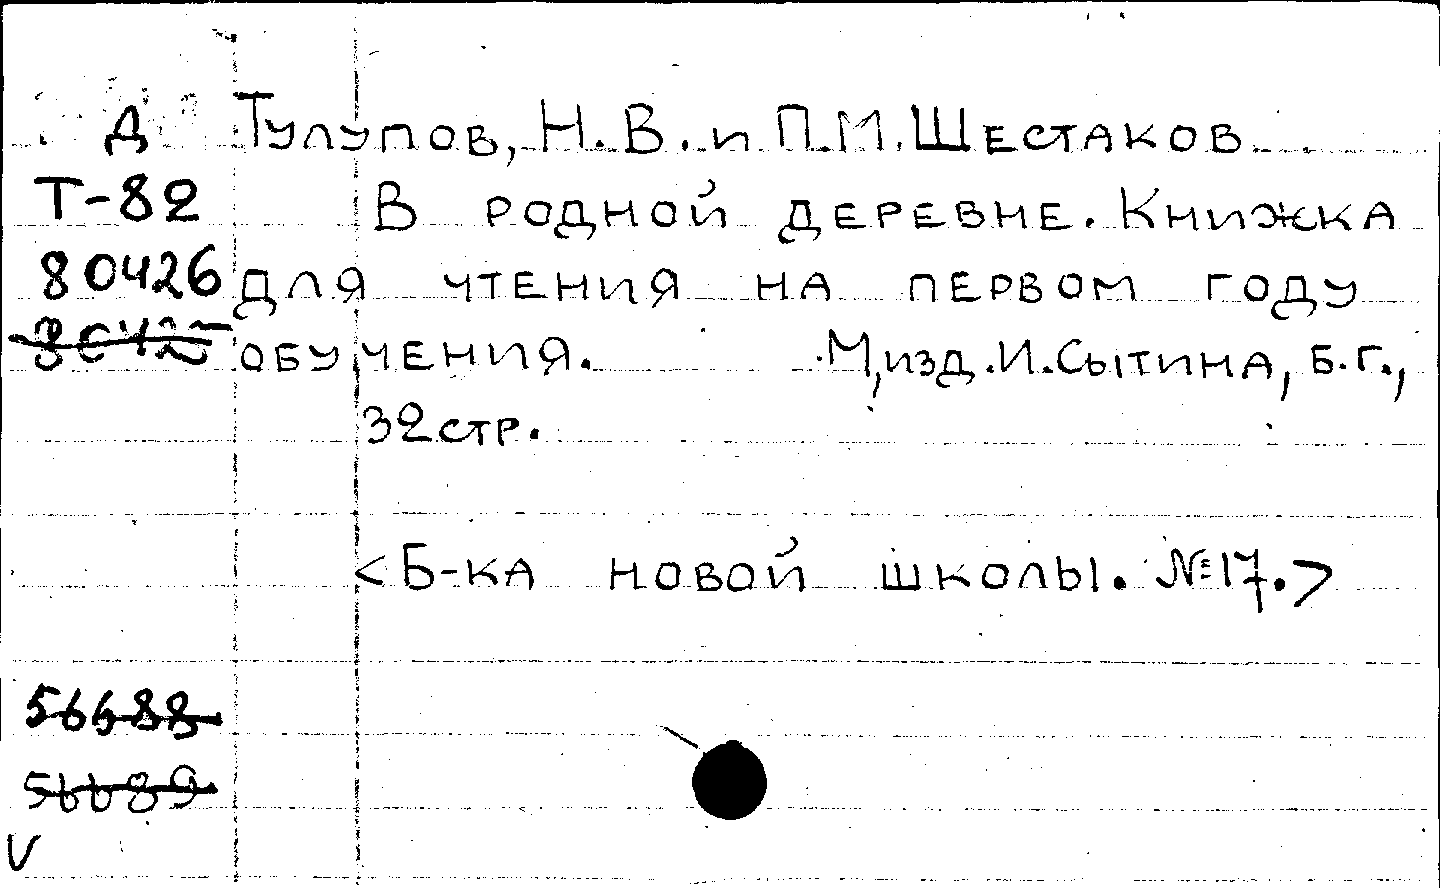 Д Тулупов, Н. В. и П. М. Шестаков
Т-82 В родной деревне. Книжка
80426 для чтения на первом году
80425 обучения. М, изд. И. Сытина, б. г.,
32 стр.
<Б-ка новой школы. №17.>
56688
56689
V